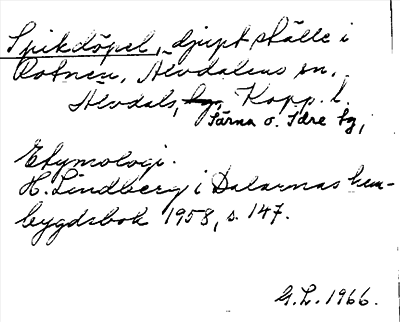 Spikdöpel, djupt ställe i
Rotnen, Älvdalens sn,
Älvdals, Kopp. l.
Särna o. Idre tg,
Etymologi.
H. Lindberg i Dalarnas hem-
bygdsbok 1958, s. 147.
G.L. 1966.